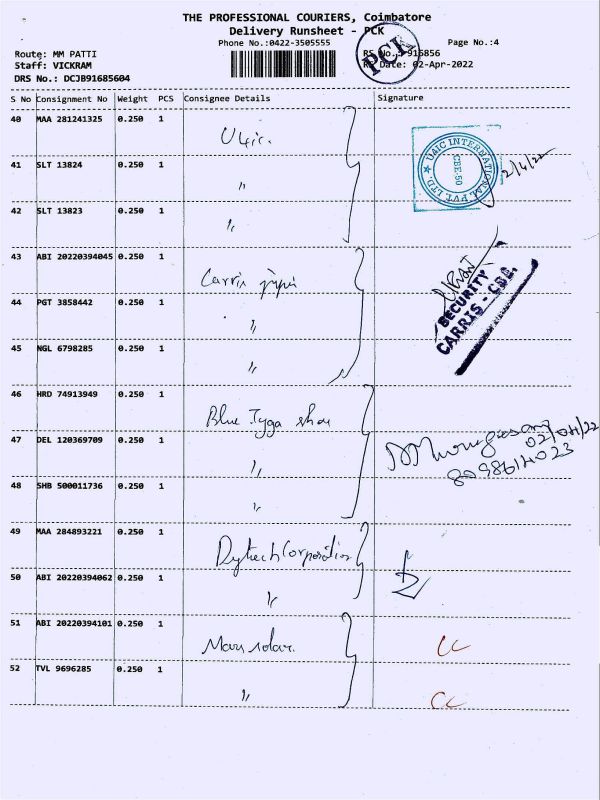 THE PROFESSIONAL COURIERS, Coimbatore
Delivery Runsheet - PCK
Phone No.:0422-3505555
Page No.:4
Route: MM PATTI
Staff: VICKRAM
DRS No.: DCJB91685604
RS No.: 916856
RS Date: 02-Apr-2022
PCI
S No Consignment No Weight PCS Consignee Details Signature
40 MAA 281241325 0.250 1
UAIC INTERNATIONAL PVT. LTD. ★
CBE.50
2/4/22
41 SLT 13824 0.250 1 〃
42 SLT 13823 0.250 1 〃
43 ABI 20220394045 0.250 1 Carris
SECURITY
CARRIS - CBE.
44 PGT 3858442 0.250 1 〃
45 NGL 6798285 0.250 1 〃
46 HRD 74913949 0.250 1 Blue Tyga
02/04/22
8098614023
47 DEL 120369709 0.250 1 〃
48 SHB 500011736 0.250 1 〃
49 MAA 284893221 0.250 1 Dytech Corporation
50 ABI 20220394062 0.250 1 〃
51 ABI 20220394101 0.250 1 CC
52 TVL 9696285 0.250 1 〃 CC